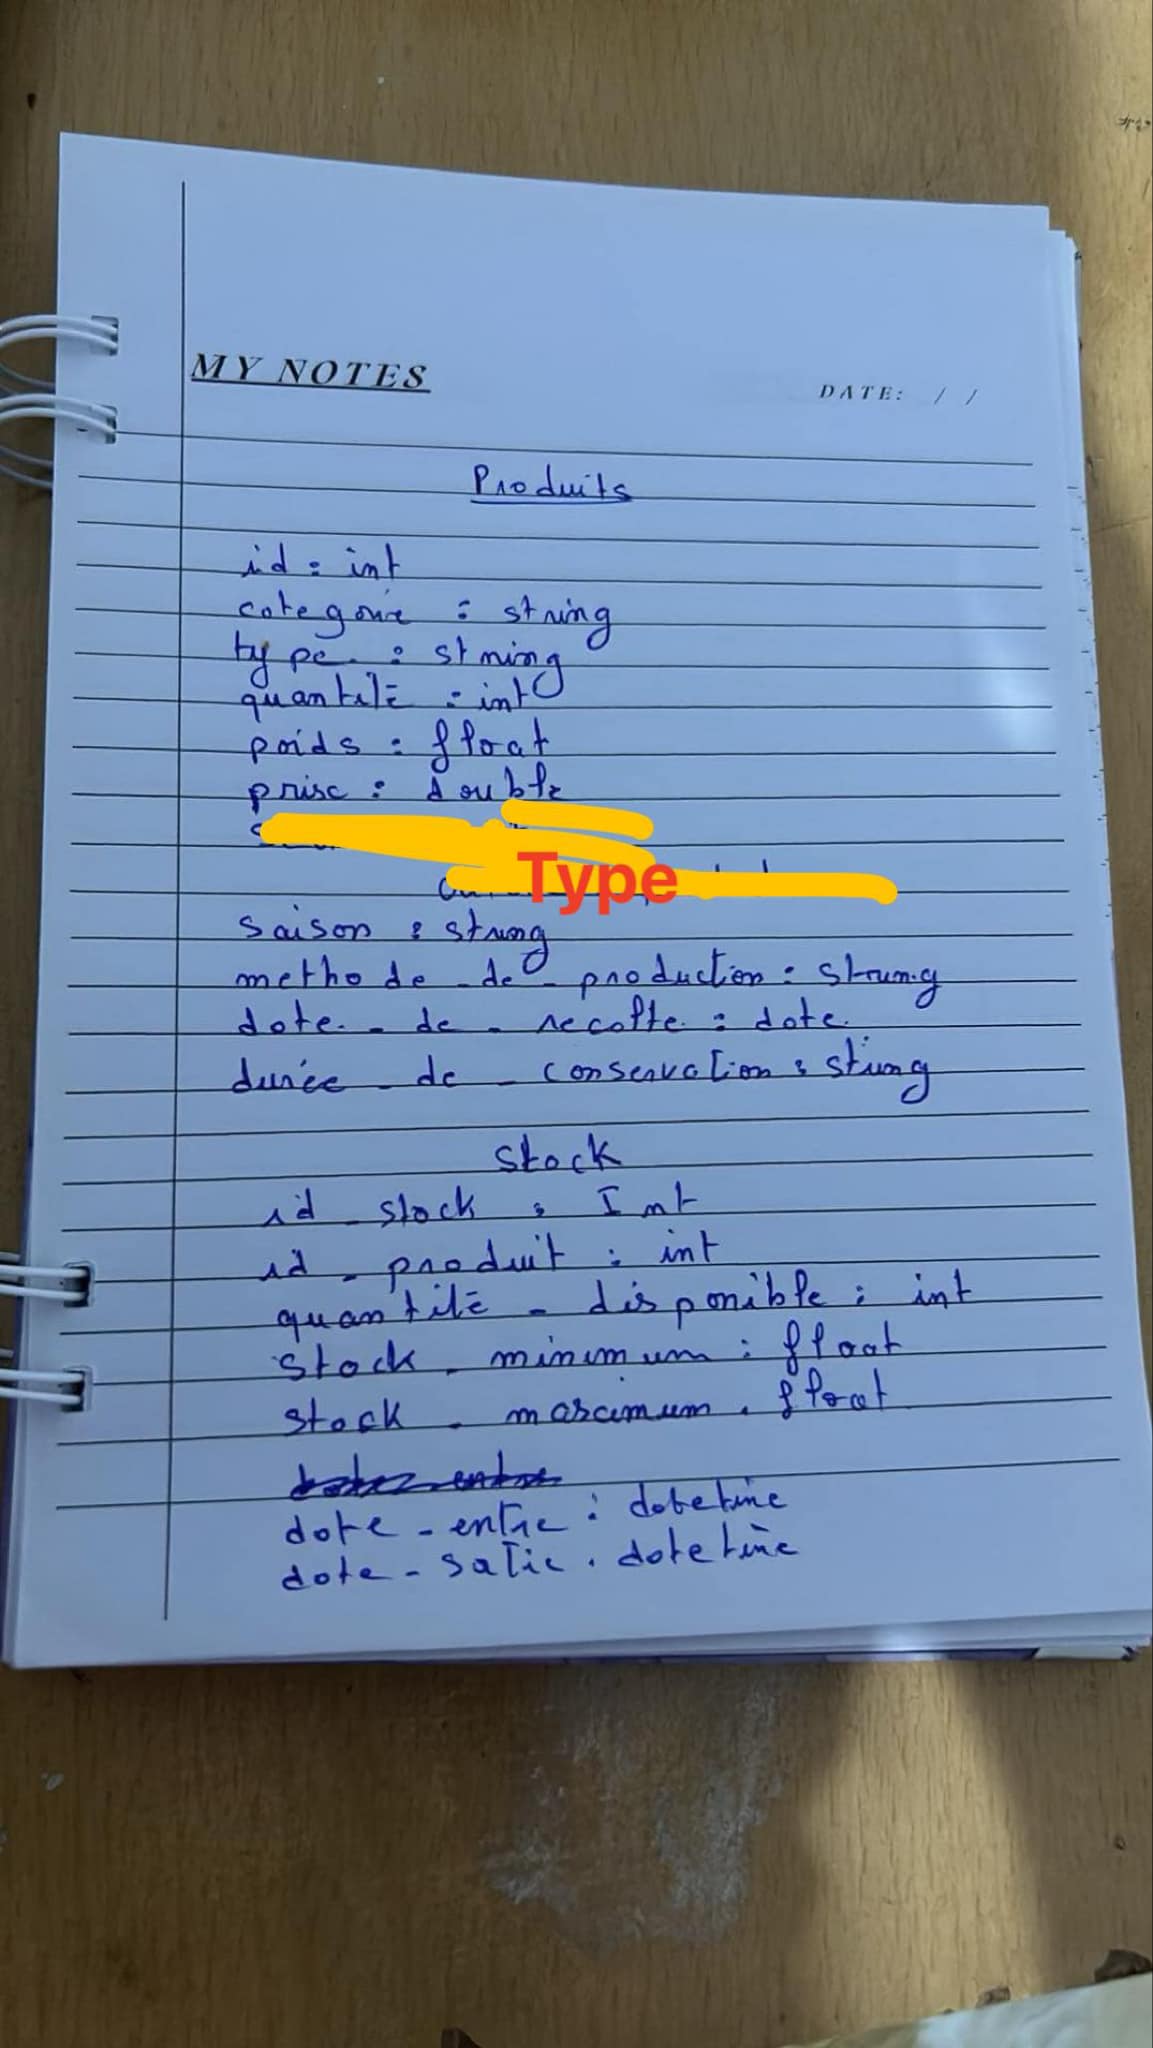 MY NOTES
DATE: / /
Produits
id : int
categorie : string
type : string
quantité : int
poids : float
prix : double
Type
saison : string
methode - de - production : string
date - de - recolte : date
durée - de - conservation : string
Stock
id - stock : Int
id - produit : int
quantité - disponible : int
stock - minimum : float
stock - maximum . float
date - entre : datetime
date - satie . datetime